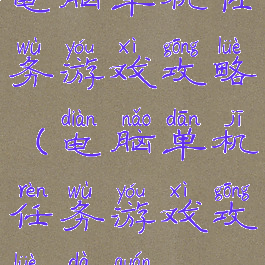 电脑单机任
wù yóu xì gōng lüè
务游戏攻略
diàn nǎo dān jī
（电脑单机
rèn wù yóu xì gōng
任务游戏攻
lüè dà quán